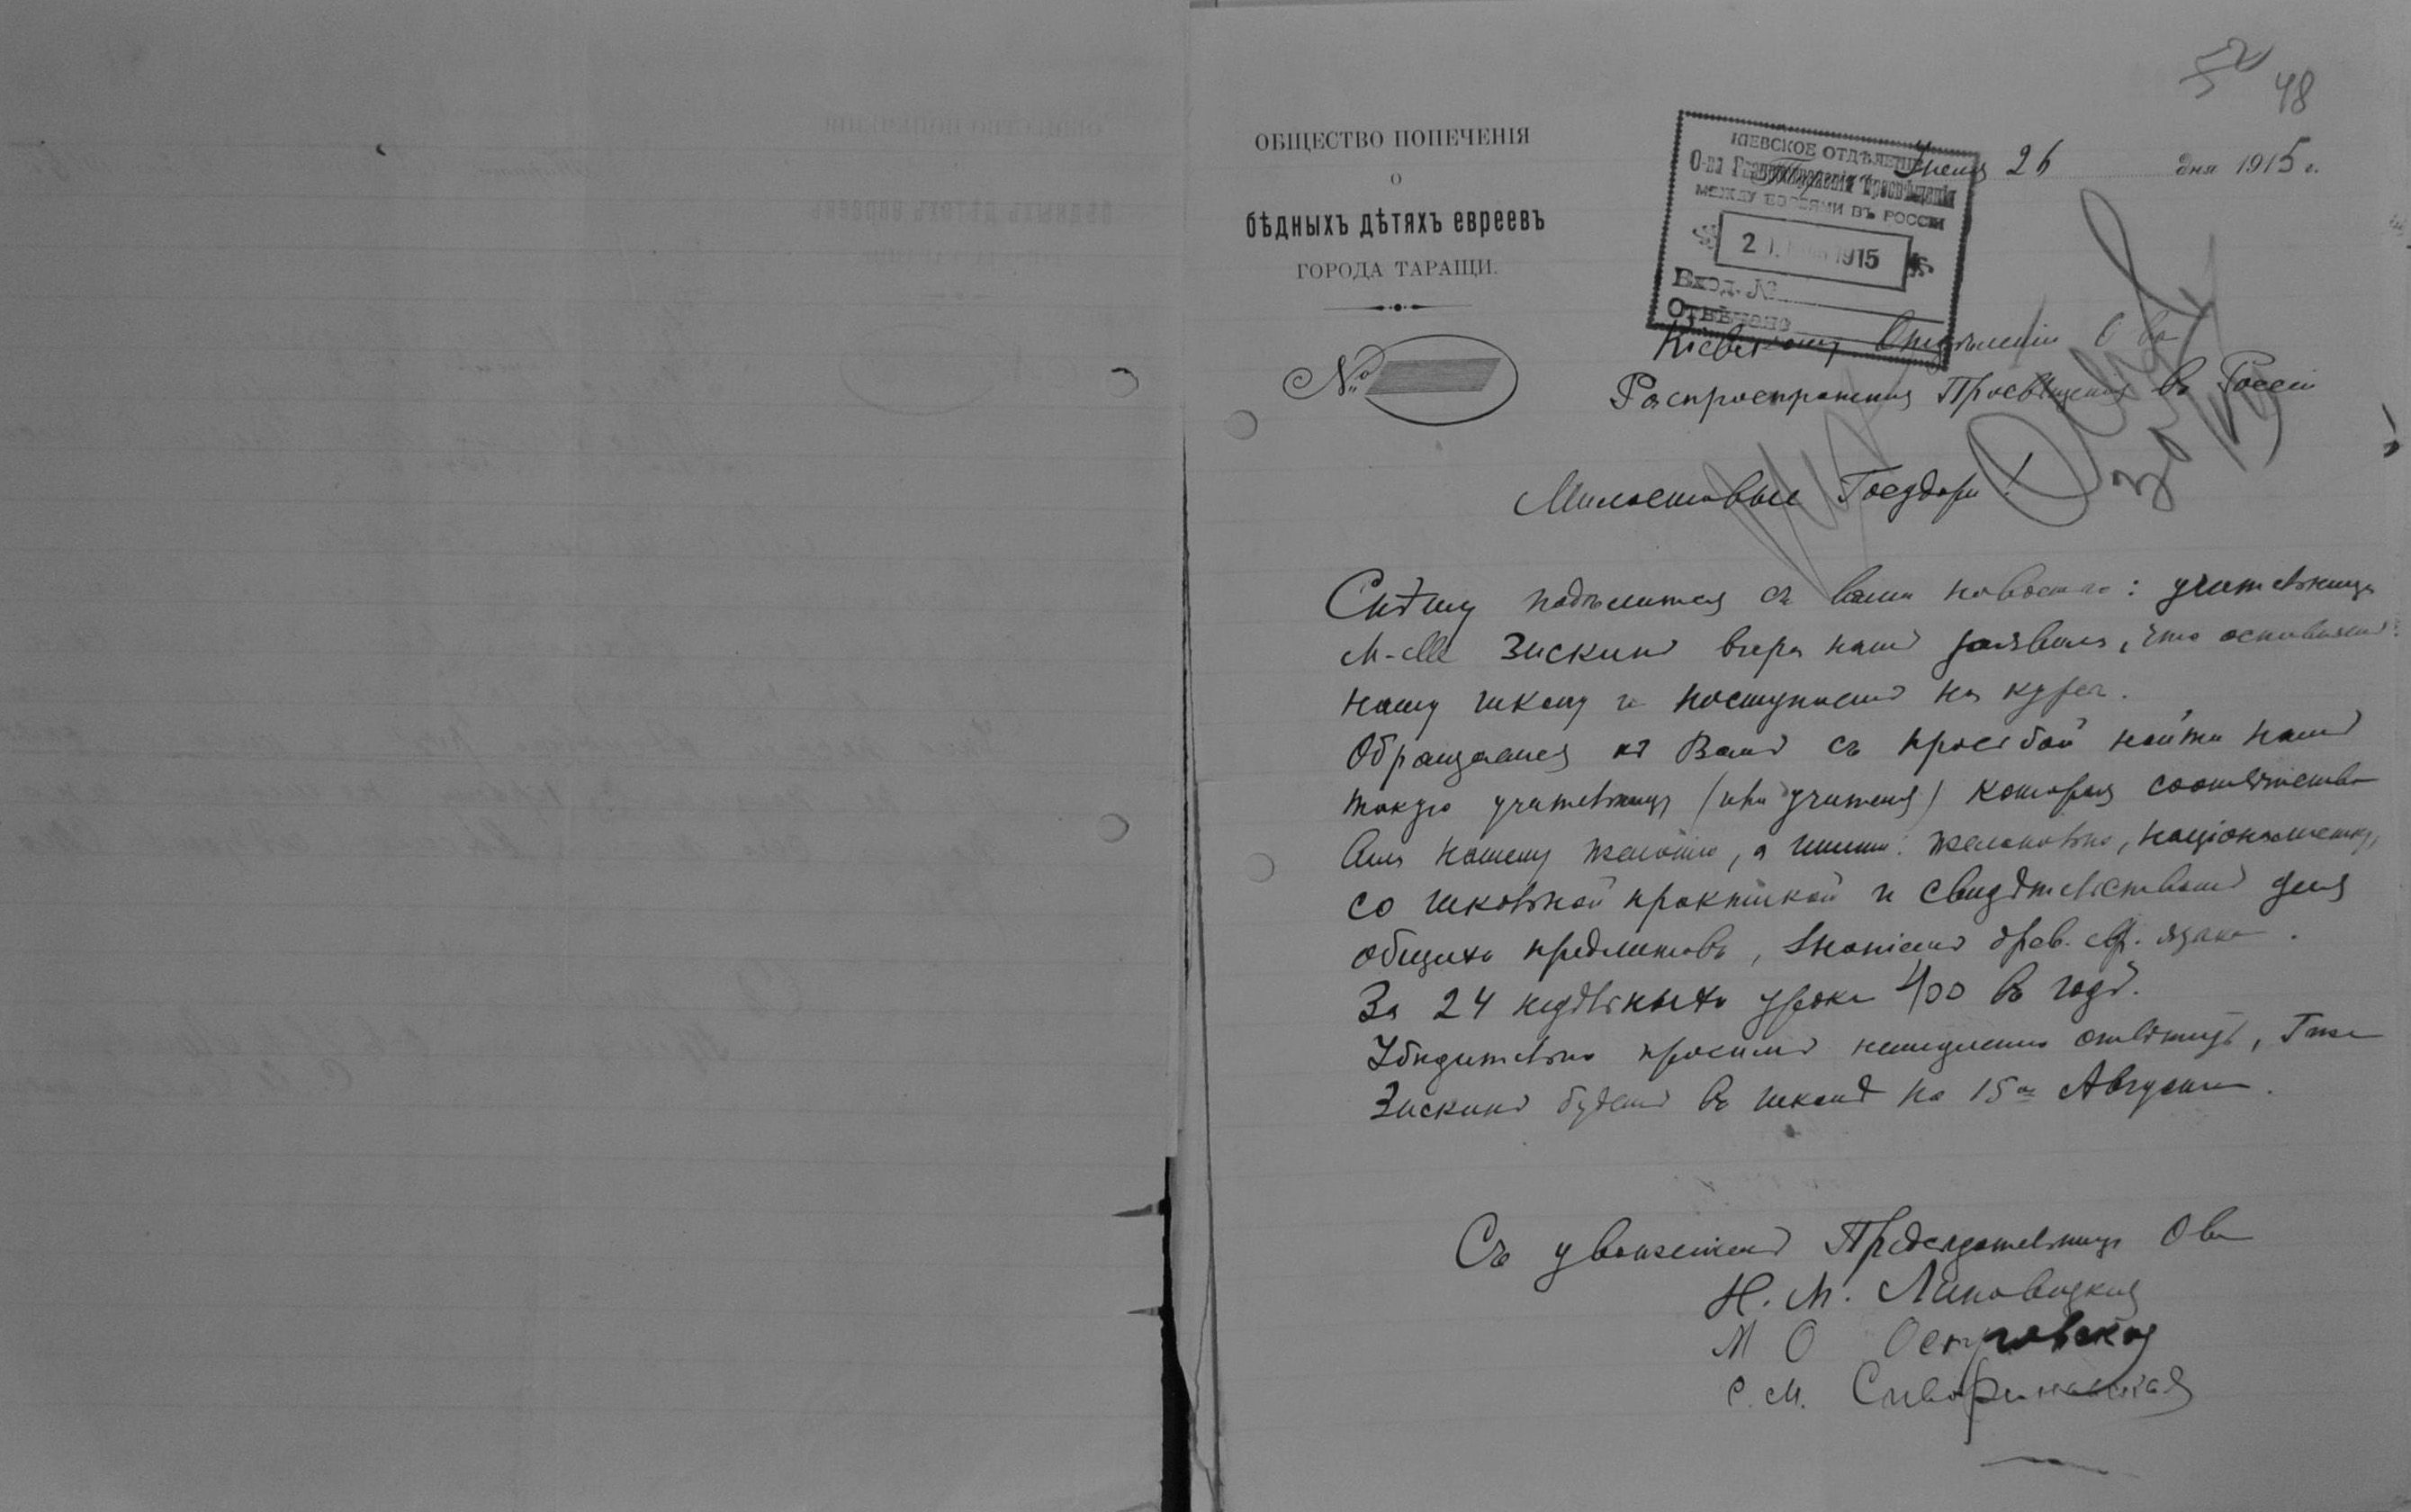 52
48
ОБЩЕСТВО ПОПЕЧЕНІЯ
о
бѣдныхъ дѣтяхъ евреевъ
ГОРОДА ТАРАЩИ.
№
26 дня 1915 г.
КІЕВСКОЕ ОТДѢЛЕНІЕ
О-ва Распространенія Просвѣщенія
МЕЖДУ ЕВРЕЯМИ ВЪ РОССІИ
2 1915
Вход. №
Отвѣчено
Кіевскому Отдѣленію О ва
Распространенія Просвѣщенія въ Россіи
Милостивые Государи!
Спѣшу подѣлиться съ вами новостью: учительница
М-llе Зискинд вчера намъ заявила, что оставляетъ
нашу школу и поступаетъ на курсы.
Обращаемся къ Вамъ съ просьбой найти намъ
такую учительницу (или учителя) которая соотвѣтство
вала нашему желанію, а именно: желательно, націоналистку,
со школьной практикой и свидѣтельствомъ для
общихъ предметовъ, знаніемъ древ. евр. языка.
За 24 недѣльныхъ урока 400 въ годъ.
Убѣдительно просимъ немедленно отвѣтить, Г-жа
Зискинд будетъ въ школѣ по 15ое Августа.
Съ уваженіемъ Предсѣдательница О ва
Н. М. Липовецкая
М О Островская
С. М.